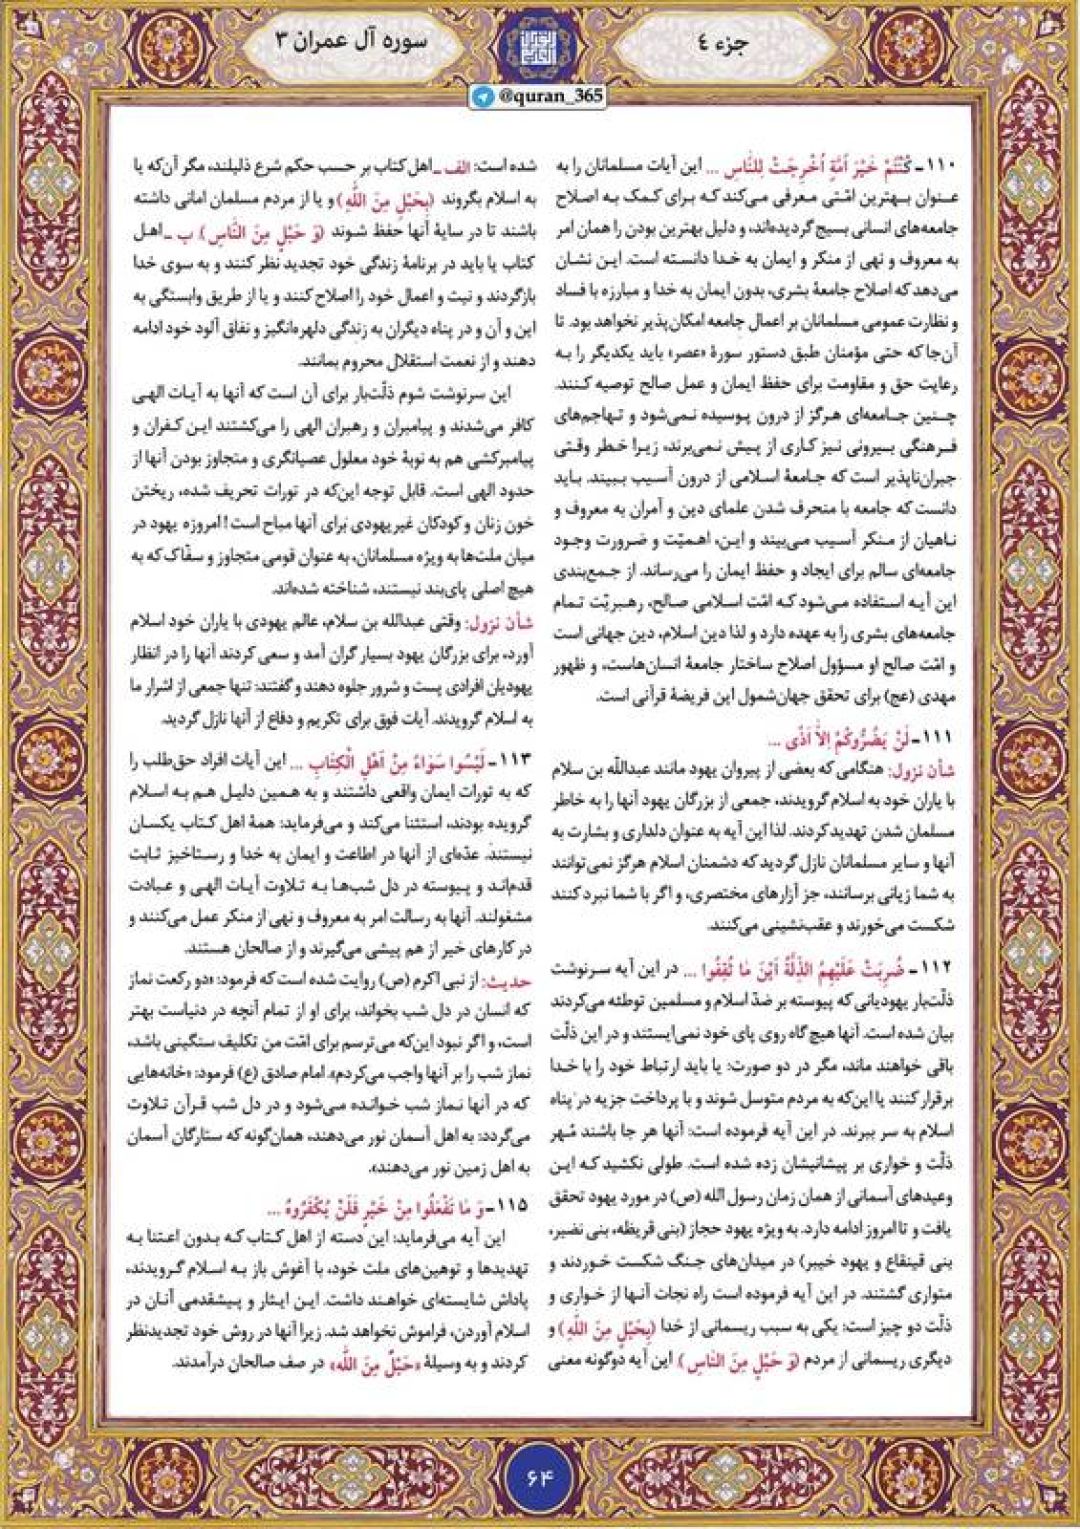 جزء ٤
سوره آل عمران ٣
@quran_365
۱۱۰ـ كُنْتُمْ خَيْرَ اُمَّةٍ اُخْرِجَتْ لِلنّاسِ ... این آیات مسلمانان را به
عنوان بهترین امّتی معرفی می‌کند که برای کمک به اصلاح
جامعه‌های انسانی بسیج گردیده‌اند، و دلیل بهترین بودن را همان امر
به معروف و نهی از منکر و ایمان به خدا دانسته است. این نشان
می‌دهد که اصلاح جامعهٔ بشری، بدون ایمان به خدا و مبارزه با فساد
و نظارت عمومی مسلمانان بر اعمال جامعه امکان‌پذیر نخواهد بود. تا
آن‌جا که حتی مؤمنان طبق دستور سورهٔ «عصر» باید یکدیگر را به
رعایت حق و مقاومت برای حفظ ایمان و عمل صالح توصیه کنند.
چنین جامعه‌ای هرگز از درون پوسیده نمی‌شود و تهاجم‌های
فرهنگی بیرونی نیز کاری از پیش نمی‌برند، زیرا خطر وقتی
جبران‌ناپذیر است که جامعهٔ اسلامی از درون آسیب ببیند. باید
دانست که جامعه با منحرف شدن علمای دین و آمران به معروف و
ناهیان از منکر آسیب می‌بیند و این، اهمیّت و ضرورت وجود
جامعه‌ای سالم برای ایجاد و حفظ ایمان را می‌رساند. از جمع‌بندی
این آیه استفاده می‌شود که امّت اسلامی صالح، رهبریّت تمام
جامعه‌های بشری را به عهده دارد و لذا دین اسلام، دین جهانی است
و امّت صالح او مسؤول اصلاح ساختار جامعهٔ انسان‌هاست، و ظهور
مهدی (عج) برای تحقق جهان‌شمول این فریضهٔ قرآنی است.
۱۱۱ـ لَنْ يَضُرُّوكُمْ اِلاّ اَذًى ...
شأن نزول: هنگامی که بعضی از پیروان یهود مانند عبدالله بن سلام
با یاران خود به اسلام گرویدند، جمعی از بزرگان یهود آنها را به خاطر
مسلمان شدن تهدید کردند. لذا این آیه به عنوان دلداری و بشارت به
آنها و سایر مسلمانان نازل گردید که دشمنان اسلام هرگز نمی‌توانند
به شما زیانی برسانند، جز آزارهای مختصری، و اگر با شما نبرد کنند
شکست می‌خورند و عقب‌نشینی می‌کنند.
۱۱۲ـ ضُرِبَتْ عَلَيْهِمُ الذِّلَّةُ اَيْنَ مَا ثُقِفُوا ... در این آیه سرنوشت
ذلّت‌بار یهودیانی که پیوسته بر ضدّ اسلام و مسلمین توطئه می‌کردند
بیان شده است. آنها هیچ‌گاه روی پای خود نمی‌ایستند و در این ذلّت
باقی خواهند ماند، مگر در دو صورت: یا باید ارتباط خود را با خدا
برقرار کنند یا این‌که به مردم متوسل شوند و با پرداخت جزیه در پناه
اسلام به سر ببرند. در این آیه فرموده است: آنها هر جا باشند مُهر
ذلّت و خواری بر پیشانیشان زده شده است. طولی نکشید که این
وعیدهای آسمانی از همان زمان رسول الله (ص) در مورد یهود تحقق
یافت و تا امروز ادامه دارد. به ویژه یهود حجاز (بنی قریظه، بنی نضیر،
بنی قینقاع و یهود خیبر) در میدان‌های جنگ شکست خوردند و
متواری گشتند. در این آیه فرموده است راه نجات آنها از خواری و
ذلّت دو چیز است: یکی به سبب ریسمانی از خدا (بِحَبْلٍ مِنَ اللهِ) و
دیگری ریسمانی از مردم (وَ حَبْلٍ مِنَ النّاسِ). این آیه دوگونه معنی
شده است: الف ـ اهل کتاب بر حسب حکم شرع ذلیلند، مگر آن‌که یا
به اسلام بگروند (بِحَبْلٍ مِنَ اللهِ) و یا از مردم مسلمان امانی داشته
باشند تا در سایهٔ آنها حفظ شوند (وَ حَبْلٍ مِنَ النّاسِ). ب ـ اهل
کتاب یا باید در برنامهٔ زندگی خود تجدید نظر کنند و به سوی خدا
بازگردند و نیت و اعمال خود را اصلاح کنند و یا از طریق وابستگی به
این و آن و در پناه دیگران به زندگی دلهره‌انگیز و نفاق آلود خود ادامه
دهند و از نعمت استقلال محروم بمانند.
این سرنوشت شوم ذلّت‌بار برای آن است که آنها به آیات الهی
کافر می‌شدند و پیامبران و رهبران الهی را می‌کشتند این کفران و
پیامبرکشی هم به نوبهٔ خود معلول عصیانگری و متجاوز بودن آنها از
حدود الهی است. قابل توجه این‌که در تورات تحریف شده، ریختن
خون زنان و کودکان غیریهودی بَرای آنها مباح است! امروزه یهود در
میان ملت‌ها به ویژه مسلمانان، به عنوان قومی متجاوز و سفّاک که به
هیچ اصلی پای‌بند نیستند، شناخته شده‌اند.
شأن نزول: وقتی عبدالله بن سلام، عالم یهودی با یاران خود اسلام
آورد، برای بزرگان یهود بسیار گران آمد و سعی کردند آنها را در انظار
یهودیان افرادی پست و شرور جلوه دهند و گفتند: تنها جمعی از اشرار ما
به اسلام گرویدند. آیات فوق برای تکریم و دفاع از آنها نازل گردید.
۱۱۳ـ لَيْسُوا سَوَاءً مِنْ اَهْلِ الْكِتَابِ ... این آیات افراد حق‌طلب را
که به تورات ایمان واقعی داشتند و به همین دلیل هم به اسلام
گرویده بودند، استثنا می‌کند و می‌فرماید: همهٔ اهل کتاب یکسان
نیستند. عدّه‌ای از آنها در اطاعت و ایمان به خدا و رستاخیز ثابت
قدم‌اند و پیوسته در دل شب‌ها به تلاوت آیات الهی و عبادت
مشغولند. آنها به رسالت امر به معروف و نهی از منکر عمل می‌کنند و
در کارهای خیر از هم پیشی می‌گیرند و از صالحان هستند.
حدیث: از نبی اکرم (ص) روایت شده است که فرمود: «دو رکعت نماز
که انسان در دل شب بخواند، برای او از تمام آنچه در دنیاست بهتر
است، و اگر نبود این‌که می‌ترسم برای امّت من تکلیف سنگینی باشد،
نماز شب را بر آنها واجب می‌کردم». امام صادق (ع) فرمود: «خانه‌هایی
که در آنها نماز شب خوانده می‌شود و در دل شب قرآن تلاوت
می‌گردد: به اهل آسمان نور می‌دهند، همان‌گونه که ستارگان آسمان
به اهل زمین نور می‌دهند».
۱۱۵ـ وَ مَا تَفْعَلُوا مِنْ خَيْرٍ فَلَنْ يُكْفَرُوهُ ...
این آیه می‌فرماید: این دسته از اهل کتاب که بدون اعتنا به
تهدیدها و توهین‌های ملت خود، با آغوش باز به اسلام گرویدند،
پاداش شایسته‌ای خواهند داشت. این ایثار و پیشقدمی آنان در
اسلام آوردن، فراموش نخواهد شد. زیرا آنها در روش خود تجدیدنظر
کردند و به وسیلهٔ «حَبْلٌ مِنَ الله» در صف صالحان درآمدند.
۶۴